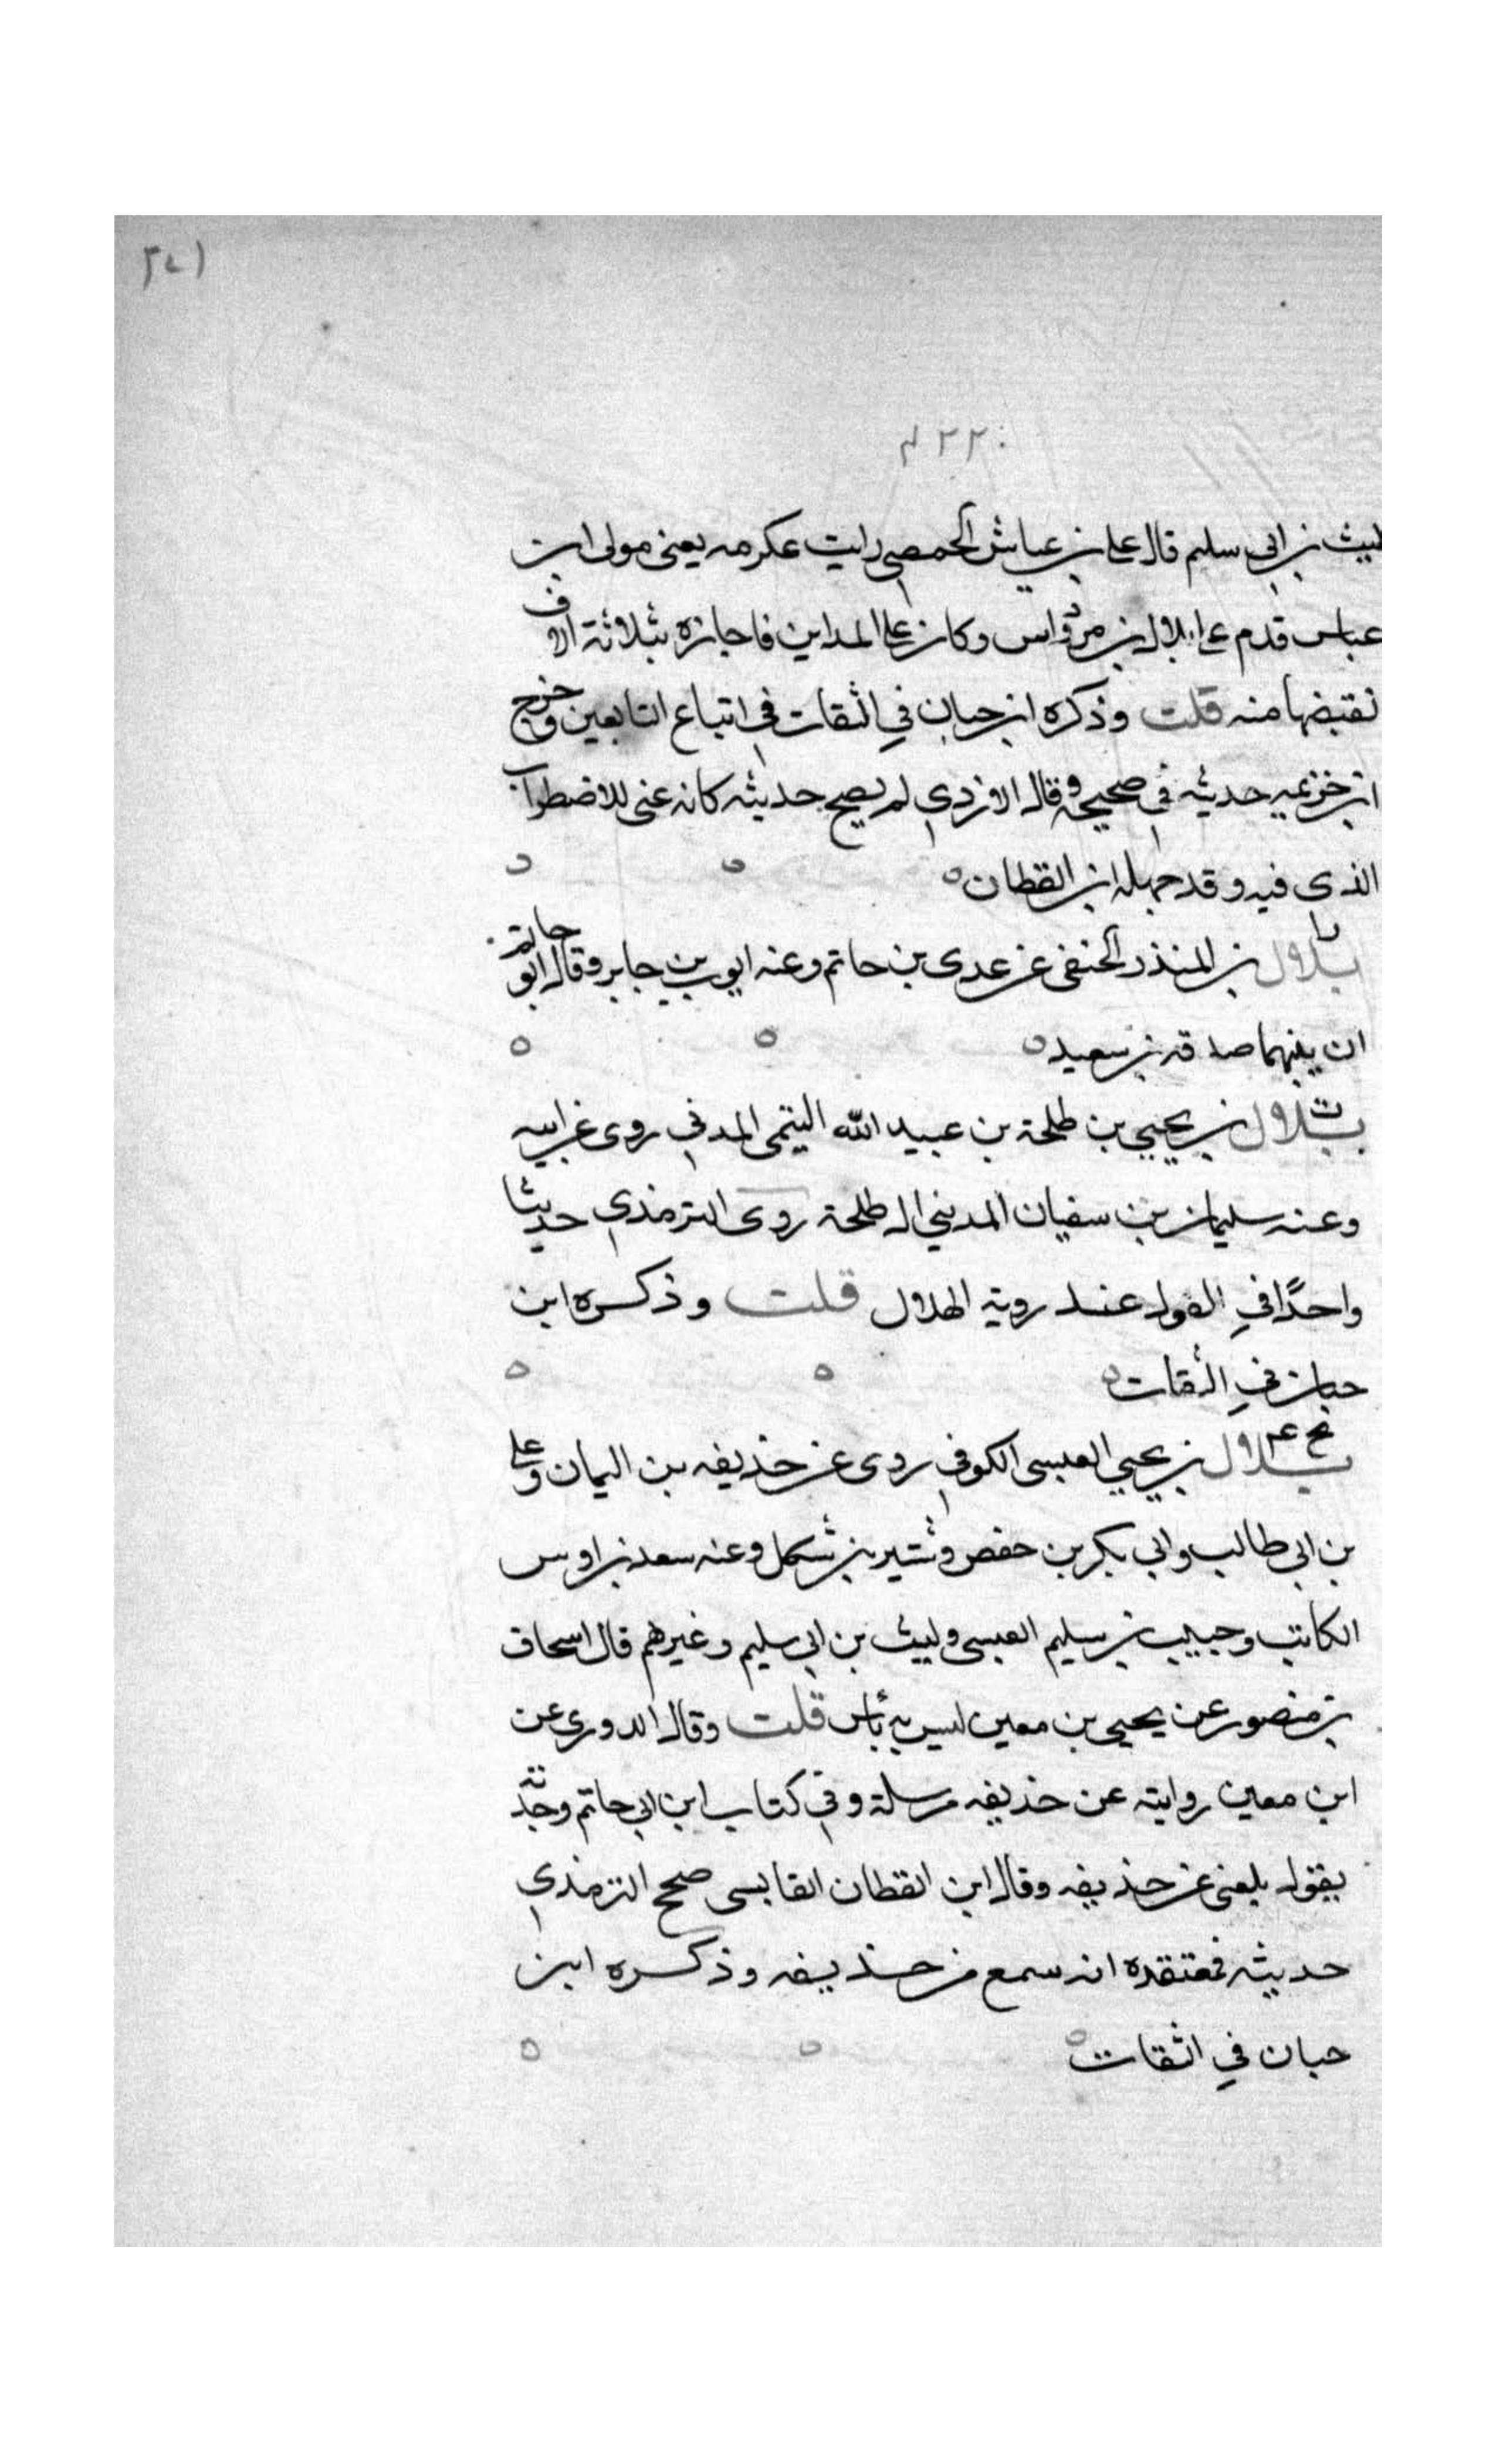 ٢٧١
٢٢٠
ليث بن ابى سليم قال على بن عياش الحمصي رايت عكرمه يعنى مولى ابن
عباس قدم على بلال بن مرداس وكان على المداين فاجازه بثلاثة الاف
فقبضها منه قلت وذكره ابن حبان في الثقات في اتباع التابعين وخرج
ابن خزيمه حديثه في صحيحه وقال الازدي لم يصح حديثه كانه عنى للاضطراب
الذى فيه وقد جهله ابن القطان
بلال بن المنذر الحنفى عن عدى بن حاتم وعنه ايوب بن جابر وقال ابو حاتم
ان بينهما صدقه بن سعيد
ت
بلال بن يحيي بن طلحة بن عبيد الله التيمى المدني روى عن ابيه
وعنه سليمان بن سفيان المديني ال طلحة روى الترمذي حديثا
واحدًا في القول عند روية الهلال قلت وذكره ابن
حبان في الثقات
بخ عم
بلال بن يحيي العبسى الكوفي روى عن حذيفه بن اليمان وعلى
بن ابى طالب وابي بكر بن حفص وشتير بن شكل وعنه سعد بن اوس
الكاتب وحبيب بن سليم العبسى وليث بن ابى سليم وغيرهم قال اسحاق
بن منصور عن يحيى بن معين ليس به بأس قلت وقال الدورى عن
ابن معين روايته عن حذيفه مرسلة وفي كتاب ابن ابي حاتم وجدته
يقول بلغنى عن حذيفه وقال ابن القطان الفابسى صحح الترمذي
حديثه فمعتقده انه سمع من حذيفه وذكره ابن
حبان في الثقات